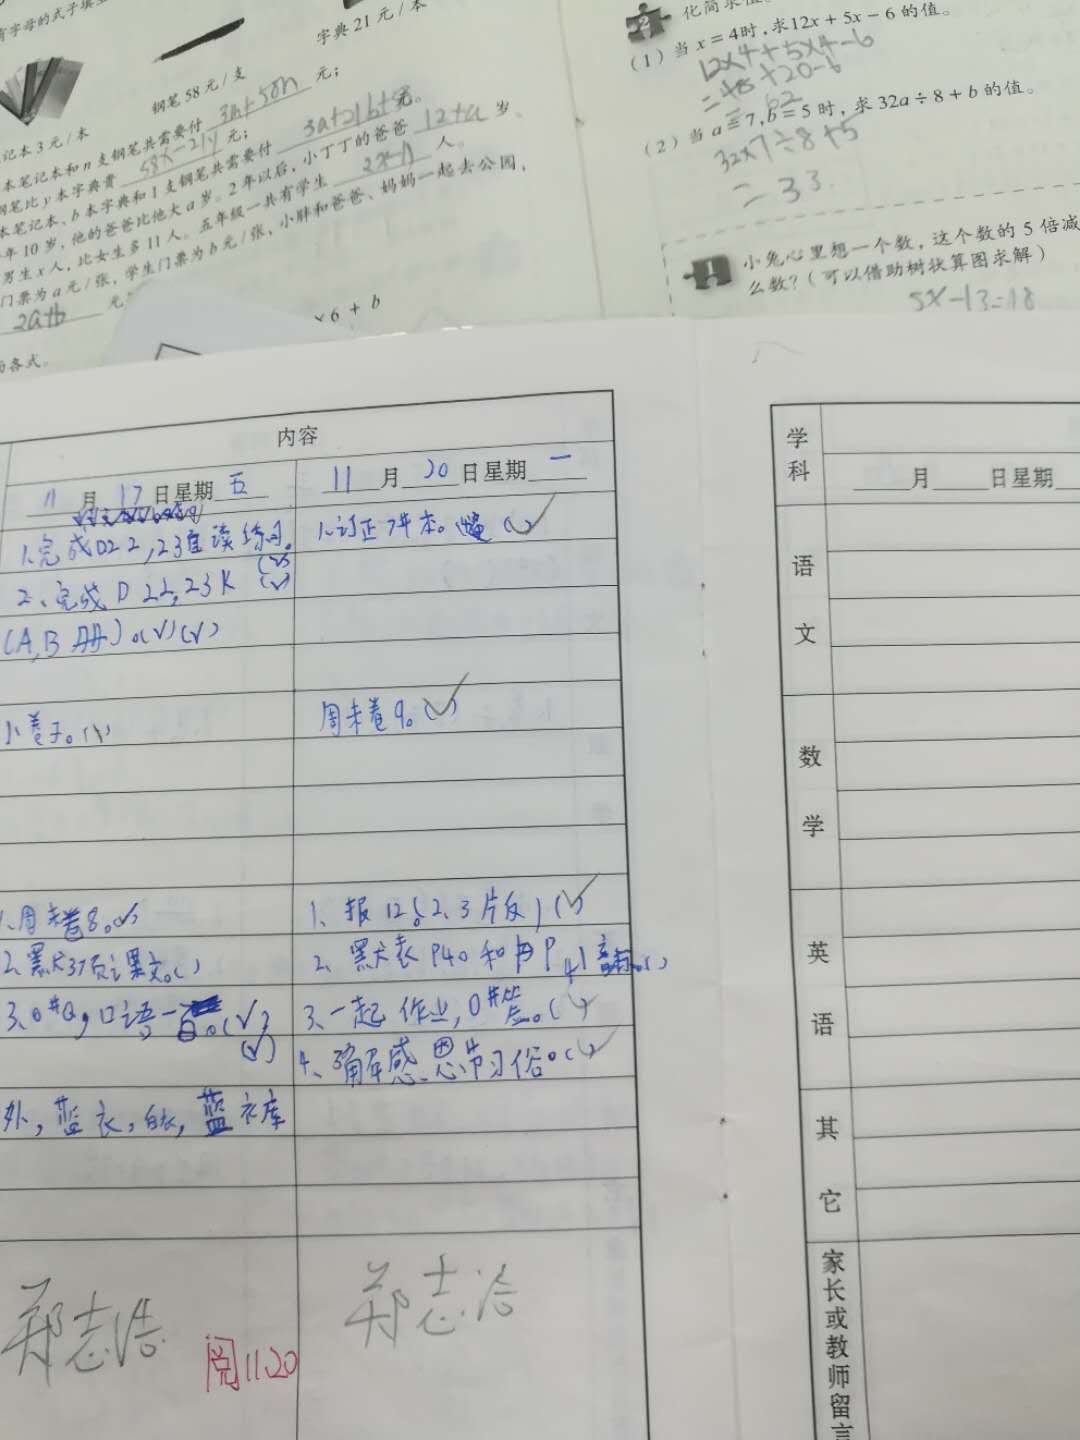 有字母的式子填空
字典 21 元 / 本
钢笔 58 元 / 支
记本 3 元 / 本
本笔记本和 n 支钢笔共需要付 3m+58n 元；
钢笔比 y 本字典贵 58x-21y 元；
本笔记本、b 本字典和 1 支钢笔共需要付 3a+21b+ 元。
年 10 岁，他的爸爸比他大 a 岁。2 年以后，小丁丁的爸爸 12+a 岁。
男生 x 人，比女生多 11 人。五年级一共有学生 2x-11 人。
门票为 a 元 / 张，学生门票为 b 元 / 张，小胖和爸爸、妈妈一起去公园，
2a+b 元
×6 + b
各式。
2 化简求值。
（1）当 x = 4 时，求 12x + 5x - 6 的值。
12×4+5×4-6
=48+20-6
=62
（2）当 a = 7，b = 5 时，求 32a ÷ 8 + b 的值。
32×7÷8+5
=33.
1 小兔心里想一个数，这个数的 5 倍减
么数？（可以借助树状算图求解）
5x-13=18
内容
11月17日星期五
11月20日星期一
1.完成D22,23 读练习。
(√)
2、完成D22,23K (√)
(A,B册)。(√)(√)
1.订正7牛本。(√)
小卷子。(√)
周末卷9。(√)
1.周末卷8。(√)
2.默37页课文。( )
3、0#Q,口语一 。(√)
(√)
1、报12 2、3片反)(√)
2、默表P40和 P41 ( )
3、一起作业,0#签。(√)
4、了解感恩节习俗。(√)
外,蓝衣,白衣,蓝衣库
郑志浩
阅11.20
郑志浩
学科
月 日星期
语文
数学
英语
其它
家长或教师留言